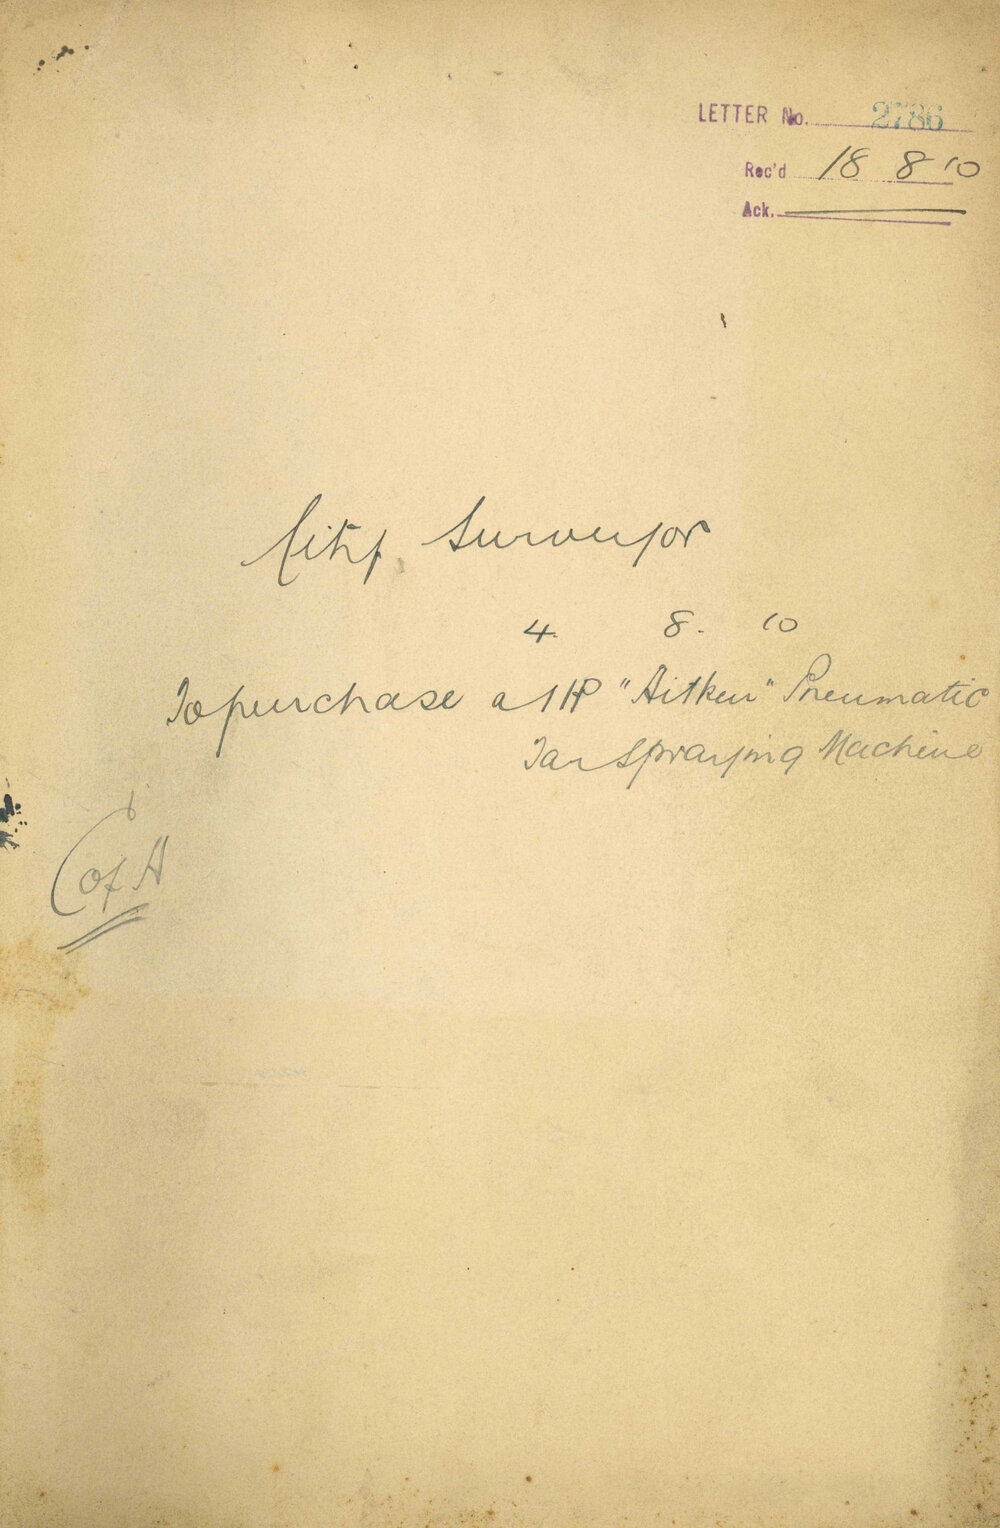 LETTER No. 2786
Rec'd 18 8 10
Ack.
City Surveyor
4. 8. 10
To purchase a 1 HP "Aitken" Pneumatic
Tar Spraying Machine
C of H